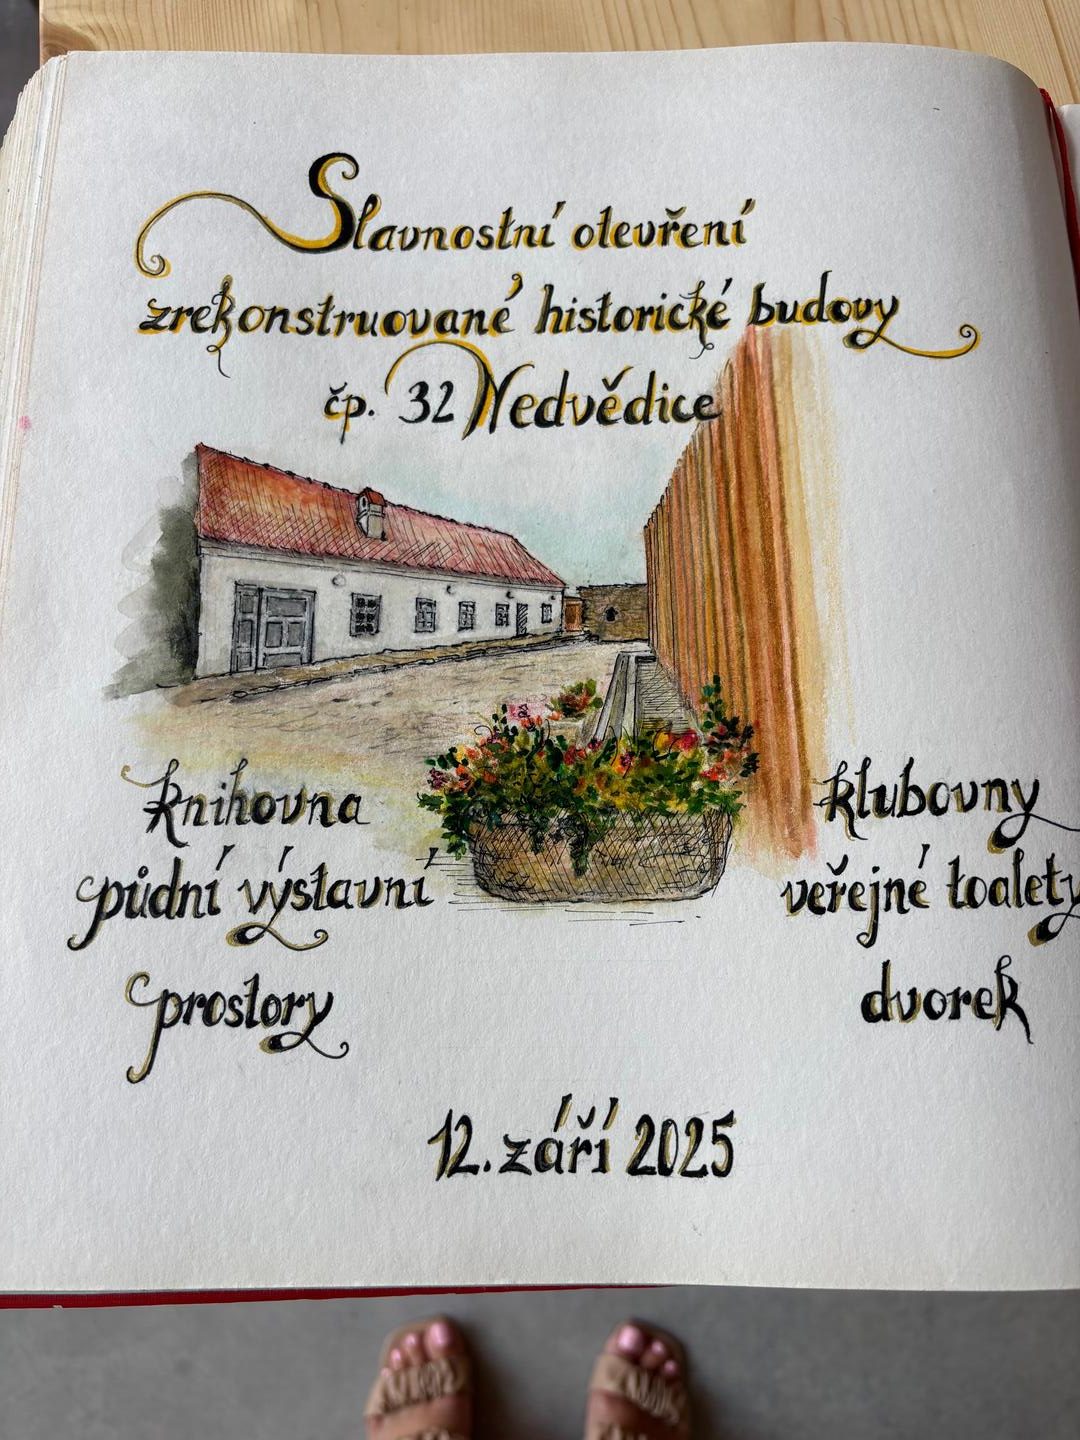 Slavnostní otevření
zrekonstruované historické budovy
čp. 32 Nedvědice
knihovna
půdní výstavní
prostory
klubovny
veřejné toalety
dvorek
12. září 2025